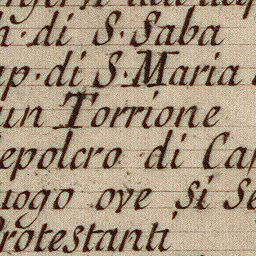 h. di S. Saba
ap. di S. Maria
un Torrione
epolcro di Ca
uogo ove si se
Protestanti